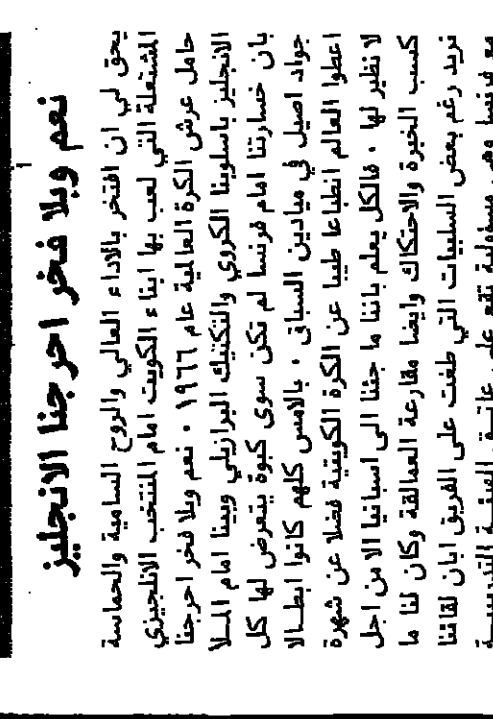 نعم وبلا فخر احرجنا الانجليز
يحق لي ان افتخر بالاداء العالي والروح السامية والحماسة
المشتعلة التي لعب بها ابناء الكويت امام المنتخب الانلجيزي
حامل عرش الكرة العالمية عام ١٩٦٦ . نعم وبلا فخر احرجنا
الانجليز باسلوبنا الكروي والتكنيك البرازيلي وبينا امام المـلا
بان خسارتنا امام فرنسا لم تكن سوى كبوة يتعرض لها كل
جواد اصيل في ميادين السباق . بالامس كلهم كانوا ابطـالا
اعطوا العالم انطباعا طيبا عن الكرة الكويتية فضلا عن شهرة
لا نظير لها . فالكل يعلم باننا ما جئنا الى اسبانيا الا من اجل
كسب الخبرة والاحتكاك وايضا مقارعة العمالقة وكان لنا ما
نريد رغم بعض السلبيات التي طغت على الفريق ابان لقائنا
مع فرنسا وهي مسؤولية تقع على عاتـق